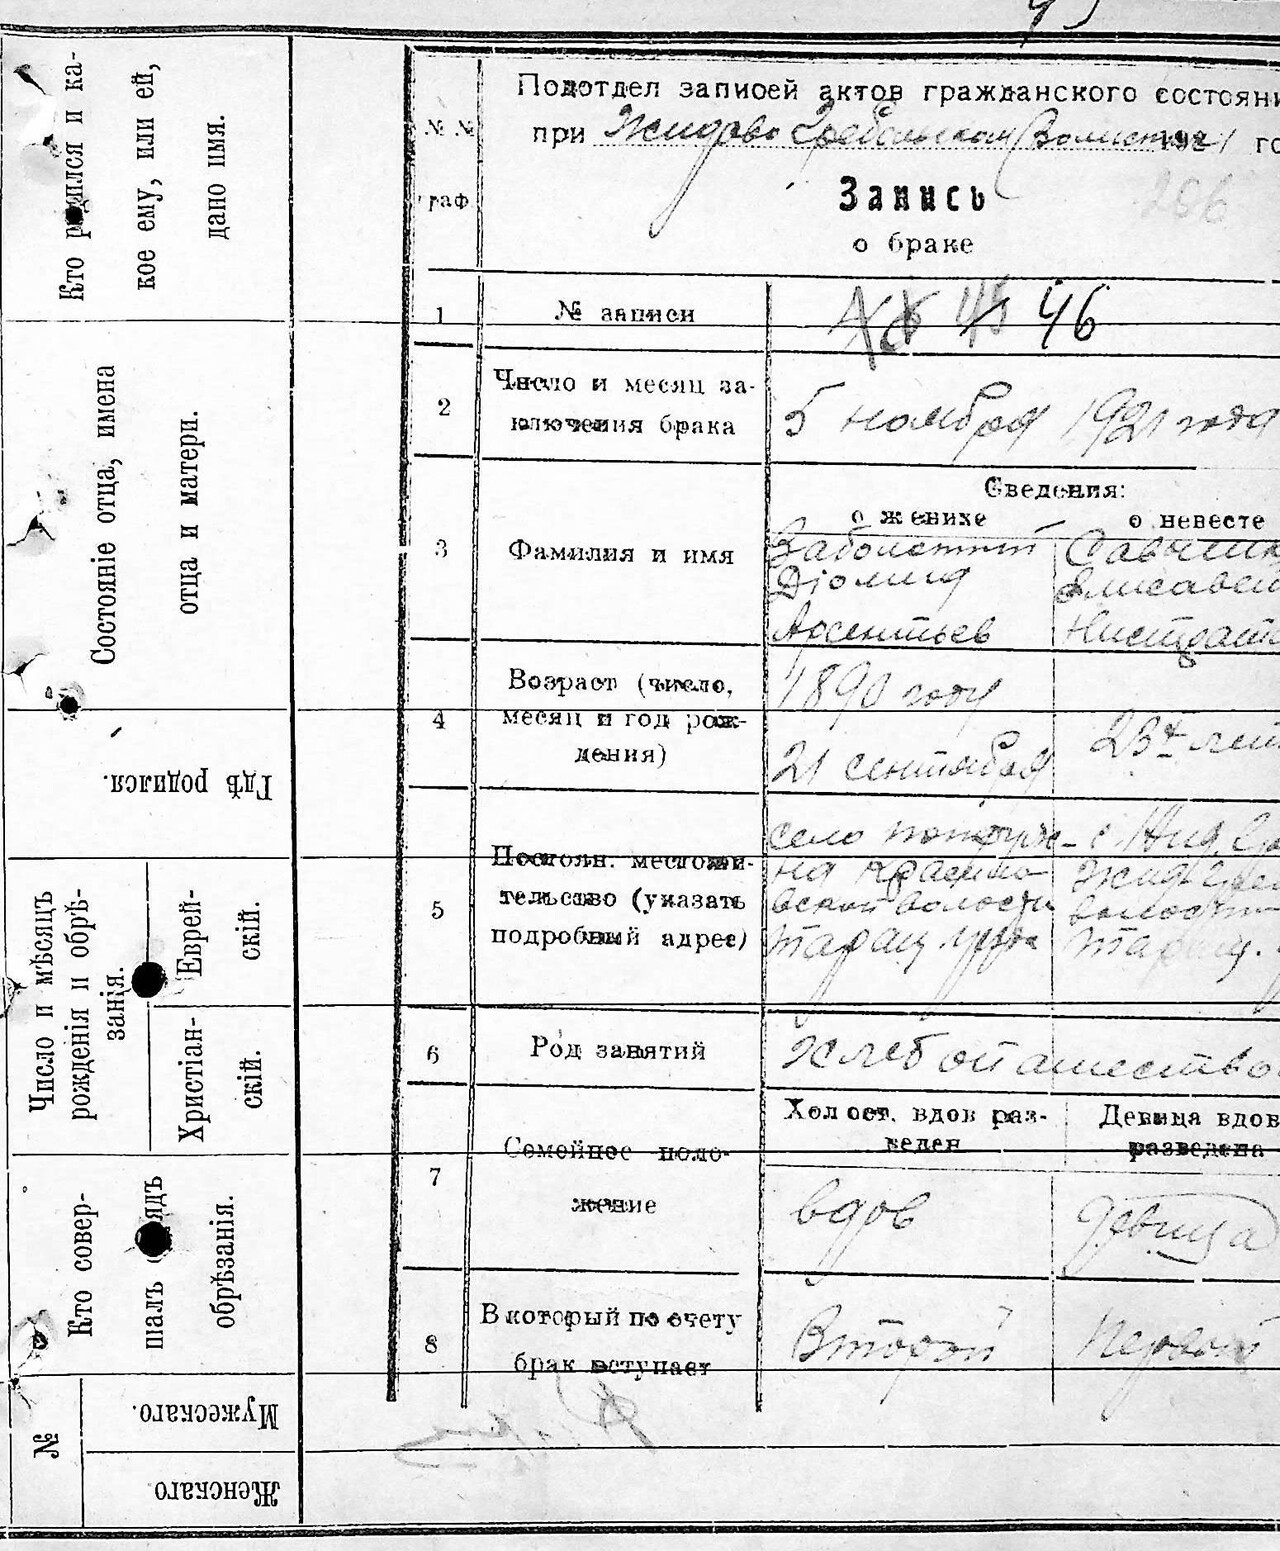 Кто родился и ка-
кое ему, или ей,
дано имя.
Состояніе отца, имена
отца и матери.
Гдѣ родился.
Число и мѣсяцъ
рожденія и обрѣ-
занія.
Еврей-
скій.
Христіан-
скій.
Кто совер-
шалъ обрядъ
обрѣзанія.
№
Мужескаго.
Женскаго.
Подотдел записей актов гражданского состояни
при Жидово Гребельской Волости 1921 го
№ №
граф.
Запись
206
о браке
1 № записи 46
2 Число и месяц за-
ключения брака
5 ноября 1921 года
Сведения:
о женихе о невесте
3 Фамилия и имя
Заболотний
Діомид
Арсентьев
Елисавет
4 Возраст (число,
месяц и год рож-
дения)
1890 году
21 сентября
23 лет
5 Постоян. местожи-
тельство (указать
подробный адрес)
село
вской волости
Таращ.
6 Род занятий Хлебопашество
7 Семейное поло-
жение
Холост. вдов раз-
веден
Девица вдов
разведена
вдов Девица
8 В который по счету
брак вступает
Второй Первый